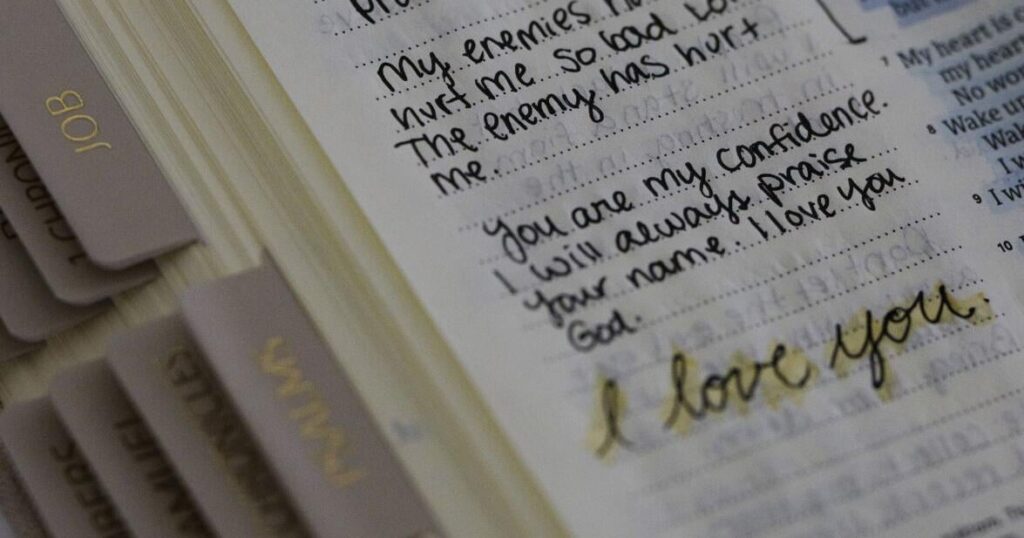 My enemies
hurt me so bad
The enemy has hurt
me.
You are my confidence.
I will always praise
your name. I love you
God.
I love you.
7 My heart is
my heart
No wor
8 Wake up
Wak
I w
9 I wi
10
JOB
1 CHRONI
PSALMS